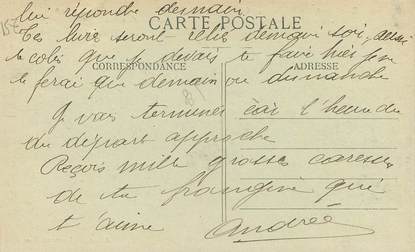 lui répondre demain
CARTE POSTALE
Tes livres seront reliés demain soir, aussi
le colis que je devais te faire hier je ne
CORRESPONDANCE
ADRESSE
ferai que demain ou dimanche
Je vais terminer car l'heure
du départ approche
Reçois mille grosses caresses
de ta frangine qui
t'aime Andrée